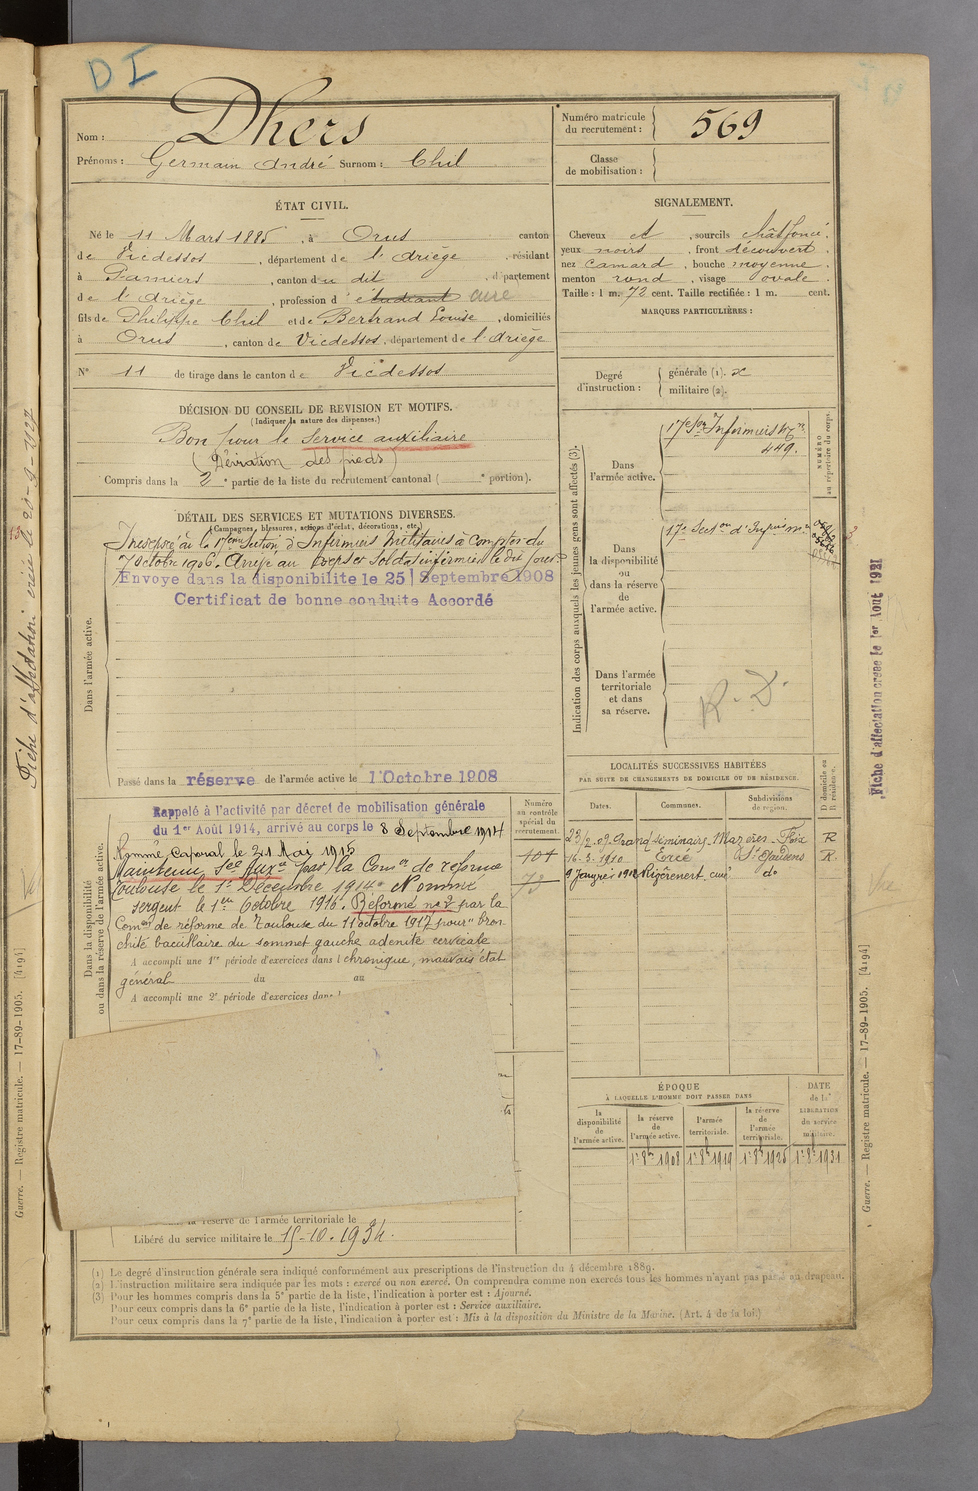 DI
Nom : Dhers
Prénoms : Germain André Surnom : Chil
Numéro matricule du recrutement : 569
Classe de mobilisation :
ÉTAT CIVIL.
Né le 11 Mars 1885, à Orus canton
de Vicdessos, département de l'Ariège, résidant
à Pamiers, canton du dit, département
de l'Ariège, profession d'étudiant curé
fils de Philippe Chil et de Bertrand Louise, domiciliés
à Orus, canton de Vicdessos, département de l'Ariège
N° 11 de tirage dans le canton de Vicdessos
SIGNALEMENT.
Cheveux et, sourcils chât foncé.
yeux noirs, front découvert.
nez camard, bouche moyenne.
menton rond, visage ovale.
Taille : 1 m. 72 cent. Taille rectifiée : 1 m. cent.
MARQUES PARTICULIÈRES :
Degré d'instruction : générale (1). 2
militaire (2).
DÉCISION DU CONSEIL DE REVISION ET MOTIFS.
(Indiquer la nature des dispenses.)
Bon pour le Service auxiliaire
(Déviation des pieds)
Compris dans la 2e partie de la liste du recrutement cantonal ( e portion).
DÉTAIL DES SERVICES ET MUTATIONS DIVERSES.
(Campagnes, blessures, actions d'éclat, décorations, etc.)
Incorporé à la 17ème Section d'Infirmiers Militaires à compter du
7 octobre 1906. Arrivé au corps et soldat infirmier le dit jour.
Envoyé dans la disponibilité le 25 Septembre 1908
Certificat de bonne conduite Accordé
Dans l'armée active.
Passé dans la réserve de l'armée active le 1 Octobre 1908
Indication des corps auxquels les jeunes gens sont affectés (3).
Dans l'armée active.
17e Son Infirmiers
449.
NUMÉRO au répertoire du corps.
Dans la disponibilité ou dans la réserve de l'armée active.
17e Section d'
Dans l'armée territoriale et dans sa réserve.
R. D.
LOCALITÉS SUCCESSIVES HABITÉES
PAR SUITE DE CHANGEMENTS DE DOMICILE OU DE RÉSIDENCE.
Dates. Communes. Subdivisions de région. D domicile ou R résidence.
Grand séminaire Mazères Foix R
16.2.1910 Ercé St Gaudens R.
9 Janvier 1912 curé do
Dans la disponibilité ou dans la réserve de l'armée active.
Numéro au contrôle spécial du recrutement.
101
72
Rappelé à l'activité par décret de mobilisation générale
du 1er Août 1914, arrivé au corps le 8 Septembre 1914
Nommé Caporal le 21 Mai 1915
Maintenu Sce Auxre par la Comon de réforme
Toulouse le 1er Décembre 1914. Nommé
sergent le 1er Octobre 1916. Réformé no 2 par la
Comon de réforme de Toulouse du 11 octobre 1917 pour "bron
chite bacillaire du sommet gauche adenite cervicale
A accompli une 1re période d'exercices dans l chronique, mauvais état
général du au
A accompli une 2e période d'exercices dans l
ÉPOQUE
À LAQUELLE L'HOMME DOIT PASSER DANS
la disponibilité de l'armée active.
la réserve de l'armée active.
l'armée territoriale.
la réserve de l'armée territoriale.
DATE de la LIBÉRATION du service militaire.
1er 8bre 1908 1er 8bre 1919 1er 8bre 1925 1er 8bre 1931
la réserve de l'armée territoriale le
Libéré du service militaire le 15-10.1934.
(1) Le degré d'instruction générale sera indiqué conformément aux prescriptions de l'instruction du 4 décembre 1889.
(2) L'instruction militaire sera indiquée par les mots : exercé ou non exercé. On comprendra comme non exercés tous les hommes n'ayant pas passé au drapeau.
(3) Pour les hommes compris dans la 5e partie de la liste, l'indication à porter est : Ajourné.
Pour ceux compris dans la 6e partie de la liste, l'indication à porter est : Service auxiliaire.
Pour ceux compris dans la 7e partie de la liste, l'indication à porter est : Mis à la disposition du Ministre de la Marine. (Art. 4 de la loi.)
Fiche d'affectation créée le 1er Août 1921
Guerre. — Registre matricule. — 17-89-1905. [4194]
Fiche d'affectation créée le 20-9-1927
Guerre. — Registre matricule. — 17-89-1905. [4194]